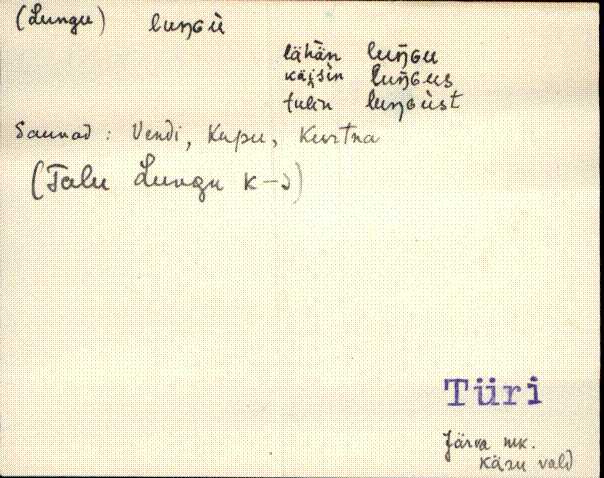 (Lungu) luŋɢù
lähän luŋ̄ɢu
käi̯sin luŋ̄ɢus
tulin luŋɢùst
Saunad: Vendi, Kupu, Kurtna
(Talu Lungu K-)
Türi
Järva mk.
Käru vald